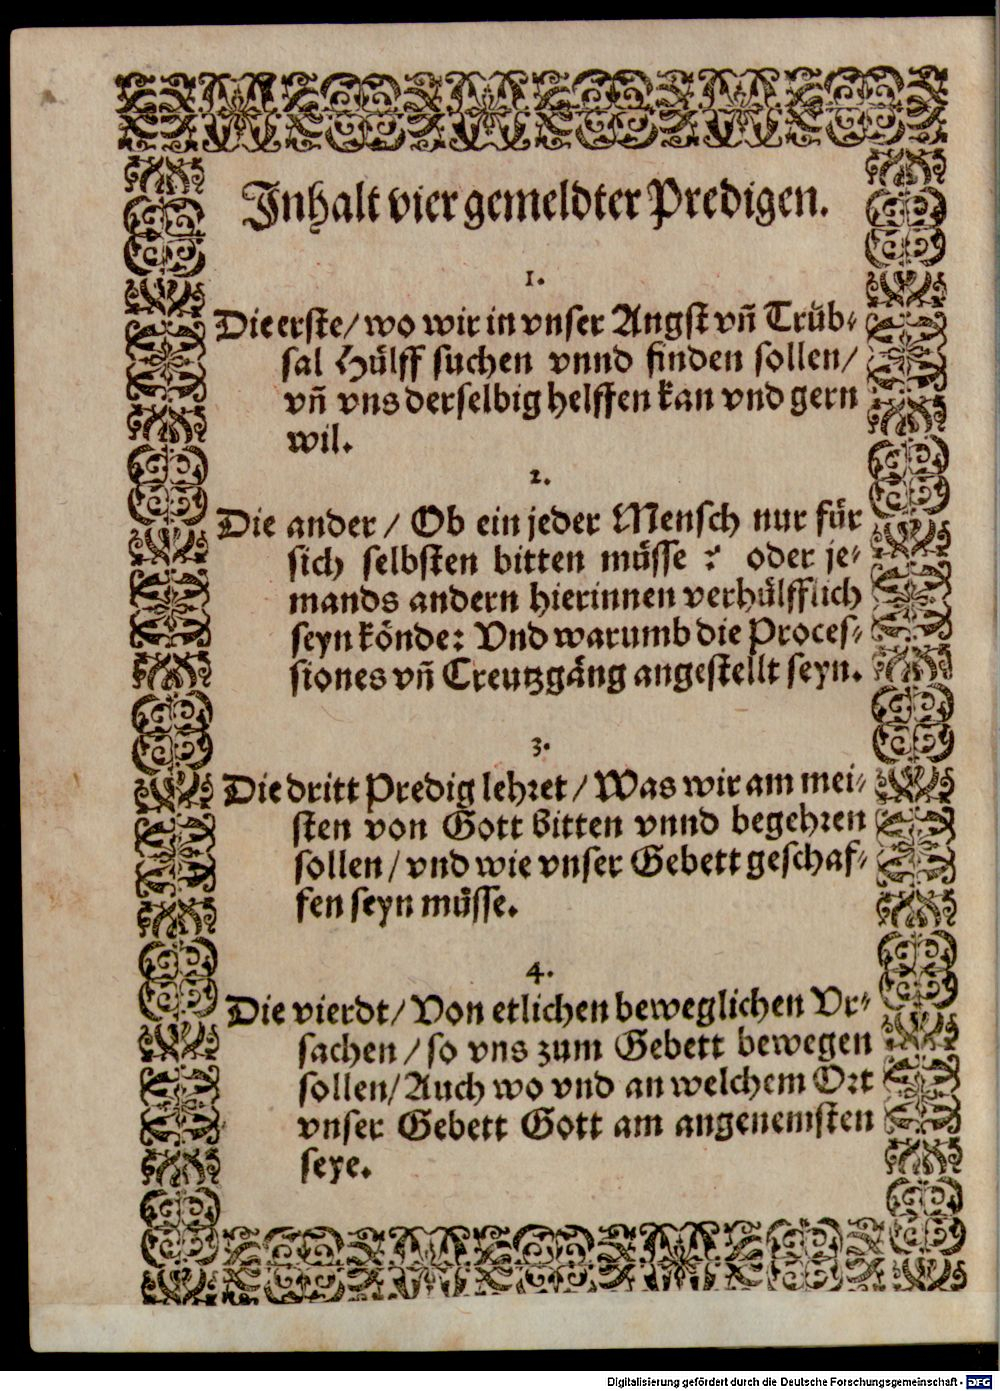 Inhalt vier gemeldter Predigen.
1.
Die erste/ wo wir in vnser Angst vñ Trüb-
sal Hülff suchen vnnd finden sollen/
vñ vns derselbig helffen kan vnd gern
wil.
2.
Die ander / Ob ein jeder Mensch nur für
sich selbsten bitten müsse ? oder je-
mands andern hierinnen verhülfflich
seyn könde: Vnd warumb die Proces-
siones vñ Creutzgäng angestellt seyn.
3.
Die dritt Predig lehret / Was wir am mei-
sten von Gott bitten vnnd begehren
sollen / vnd wie vnser Gebett geschaf-
fen seyn müsse.
4.
Die vierdt/ Von etlichen beweglichen Vr-
sachen / so vns zum Gebett bewegen
sollen/ Auch wo vnd an welchem Ort
vnser Gebett Gott am angenemsten
seye.
Digitalisierung gefördert durch die Deutsche Forschungsgemeinschaft - DFG